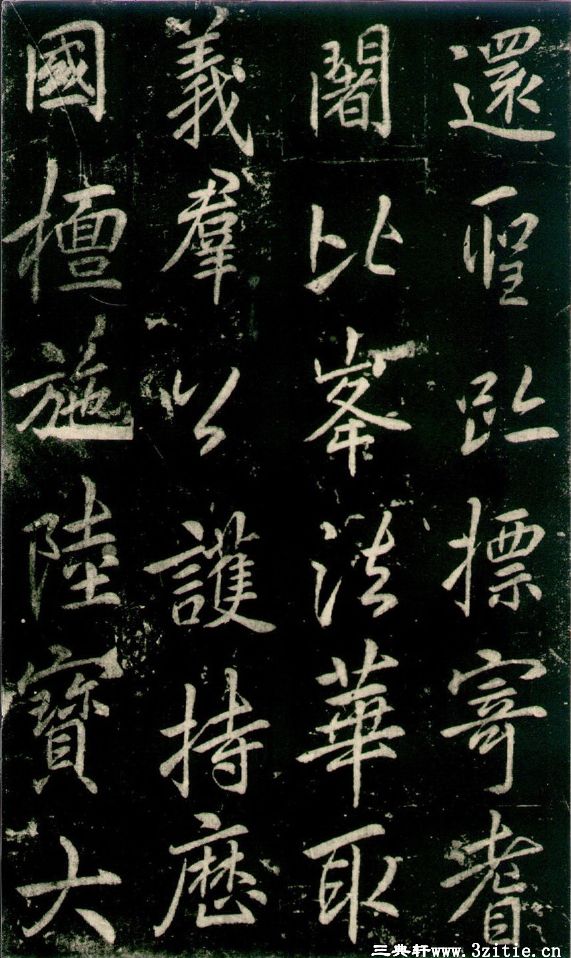 還聖趾標寄耆
闍比峯法華取
義羣以護持歷
國檀施陸寶大
三典轩www.3zitie.cn